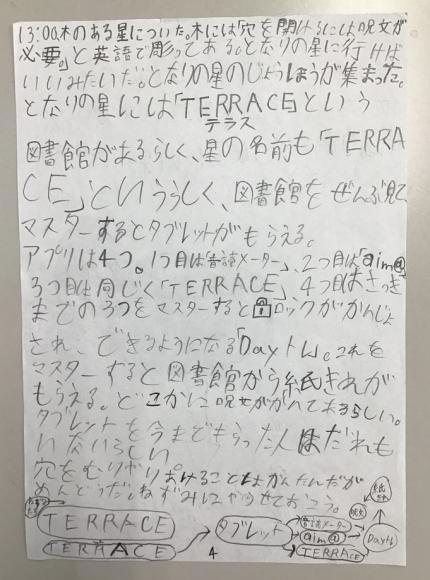 13:00木のある星についた。木には「穴を開けるには呪文が
必要。」と英語で彫ってある。となりの星に行けば
いいみたいだ。となりの星のじょうほうが集まった。
となりの星には「TERRACE」という
テラス
図書館があるらしく、星の名前も「TERRA
CE」というらしく、図書館をぜんぶ見て
マスターするとタブレットがもらえる。
アプリは4つ。1つ目は「音読メーター」、2つ目は「aim@」
3つ目は同じく「TERRACE」4つ目はさっき
までの3つをマスターすると🔒ロックがかんじょ
され、できるようになる「Dayトレ」。これを
マスターすると図書館から紙きれが
もらえる。どこかに呪文がかいてあるらしい。
タブレットを今までもらった人はだれも
いないらしい
穴をむりやりあけることはかんたんだが
めんどうだ。ねずみにやらせておこう。
TERRACE
TERRACE
タブレット
音読メーター
aim@
TERRACE
Dayトレ
呪文
4